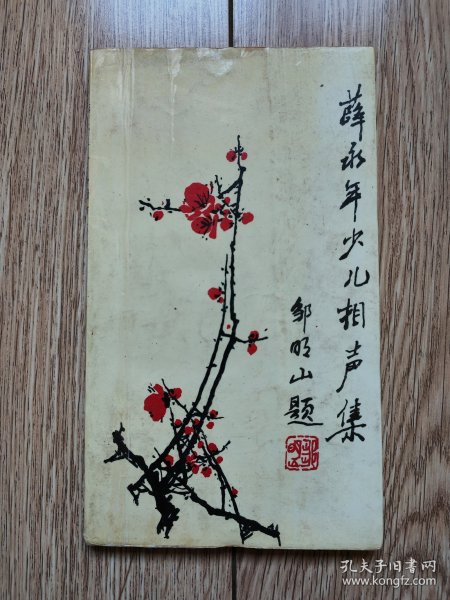 薛永年少儿相声集
邹明山题
孔夫子旧书网
www.kongfz.com